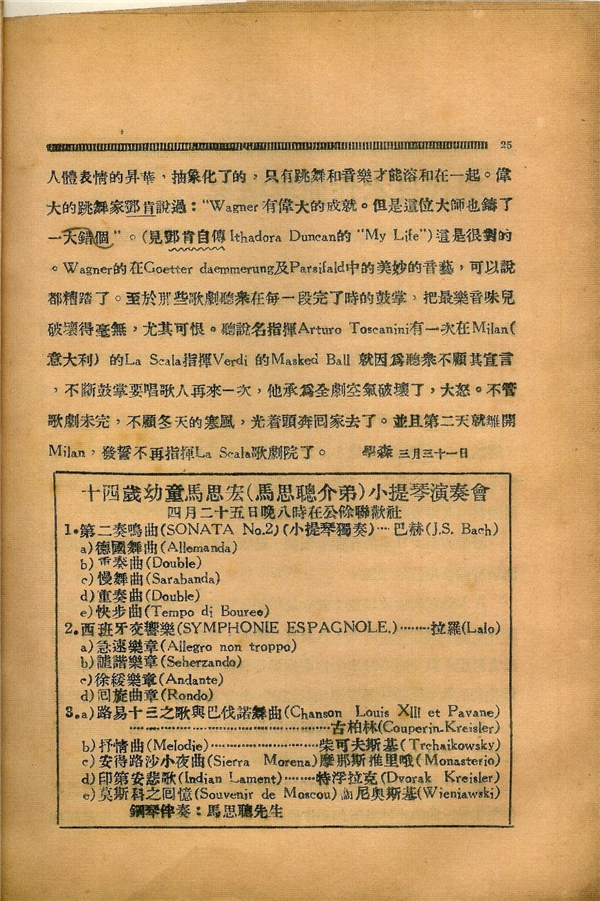 25
人體表情的昇華，抽象化了的，只有跳舞和音樂才能溶和在一起。偉
大的跳舞家鄧肯說過：“Wagner有偉大的成就。但是這位大師也鑄了
一大錯個”。(見鄧肯自傳Ithadora Duncan的“My Life”)這是很對的
。Wagner的在Goetter daemmerung及Parsifald中的美妙的音藝，可以說
都糟踏了。至於那些歌劇聽衆在每一段完了時的鼓掌，把最樂音味兒
破壞得毫無，尤其可恨。聽說名指揮Arturo Toscanini有一次在Milan(
意大利) 的La Scala指揮Verdi 的Masked Ball 就因爲聽衆不顧其宣言
，不斷鼓掌要唱歌人再來一次，他承爲全劇空氣破壞了，大怒。不管
歌劇未完，不顧冬天的寒風，光着頭奔回家去了。並且第二天就離開
Milan，發誓不再指揮La Scala歌劇院了。 學森 三月三十一日
十四歲幼童馬思宏(馬思聰介弟)小提琴演奏會
四月二十五日晚八時在公餘聯歡社
1。第二奏鳴曲(SONATA No.2)(小提琴獨奏)…巴赫(J.S. Bach)
a)德國舞曲(Allemanda)
b)重奏曲(Double)
c)慢舞曲(Sarabanda)
d)重奏曲(Double)
e)快步曲(Tempo di Boureo)
2。西班牙交響樂(SYMPHONIE ESPAGNOLE.)………拉羅(Lalo)
a)急速樂章(Allegro non troppo)
b)詼諧樂章(Seherzando)
c)徐緩樂章(Andante)
d)回旋曲章(Rondo)
3。a)路易十三之歌與巴伐諾舞曲(Chanson Louis XIII et Pavane)
……………………………古柏林(Couperin-Kreisler)
b)抒情曲(Melodie)………………柴可夫斯基(Trchaikowsky)
c)安得路沙小夜曲(Sierra Morena)摩那斯推里哦(Monasterio)
d)印第安悲歌(Indian Lament)………特浮拉克(Dvorak Kreisler)
e)莫斯科之回憶(Souvenir de Moscou)尼奧斯基(Wieniawski)
鋼琴伴奏：馬思聰先生